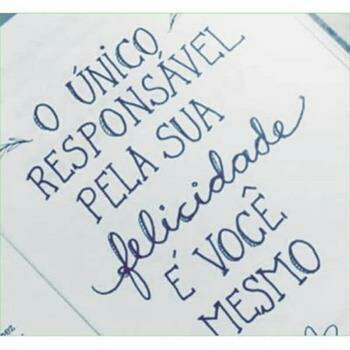 O ÚNICO
RESPONSÁVEL
PELA SUA
felicidade
É VOCÊ
MESMO